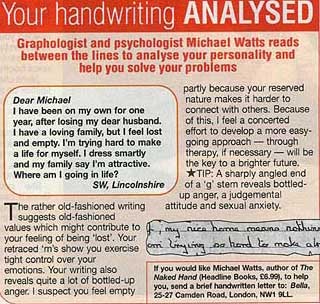 Your handwriting ANALYSED
Graphologist and psychologist Michael Watts reads
between the lines to analyse your personality and
help you solve your problems
Dear Michael
I have been on my own for one
year, after losing my dear husband.
I have a loving family, but I feel lost
and empty. I'm trying hard to make
a life for myself. I dress smartly
and my family say I'm attractive.
Where am I going in life?
SW, Lincolnshire
The rather old-fashioned writing
suggests old-fashioned
values which might contribute to
your feeling of being 'lost'. Your
retraced 'm's show you exercise
tight control over your
emotions. Your writing also
reveals quite a lot of bottled-up
anger. I suspect you feel empty
partly because your reserved
nature makes it harder to
connect with others. Because
of this, I feel a concerted
effort to develop a more easy-
going approach — through
therapy, if necessary — will be
the key to a brighter future.
★TIP: A sharply angled end
of a 'g' stem reveals bottled-
up anger, a judgemental
attitude and sexual anxiety.
my nice home means nothing
am trying so hard to make a
If you would like Michael Watts, author of The
Naked Hand (Headline Books, £6.99), to help
you, send a brief handwritten letter to: Bella,
25-27 Camden Road, London, NW1 9LL.